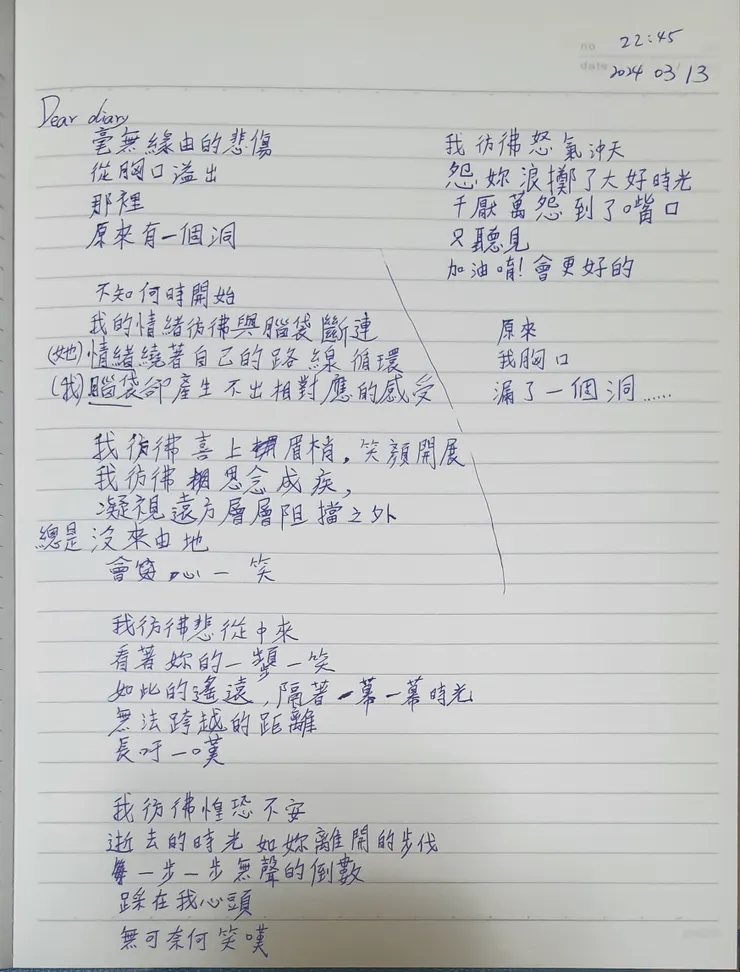 no 22:45
date 2024 03 13
Dear diary
毫無緣由的悲傷
從胸口溢出
那裡
原來有一個洞
不知何時開始
我的情緒彷彿與腦袋斷連
(她)情緒繞著自己的路線循環
(我)腦袋卻產生不出相對應的感受
我彷彿喜上眉梢,笑顏開展
我彷彿思念成疾,
凝視遠方層層阻擋之外
總是沒來由地
會心一笑
我彷彿悲從中來
看著妳的一顰一笑
如此的遙遠,隔著一幕一幕時光
無法跨越的距離
長吁一嘆
我彷彿惶恐不安
逝去的時光如妳離開的步伐
每一步一步無聲的倒數
踩在我心頭
無可奈何笑嘆
我彷彿怒氣沖天
怨妳浪擲了大好時光
千厭萬怨到了嘴口
只聽見
加油唷!會更好的
原來
我胸口
漏了一個洞......